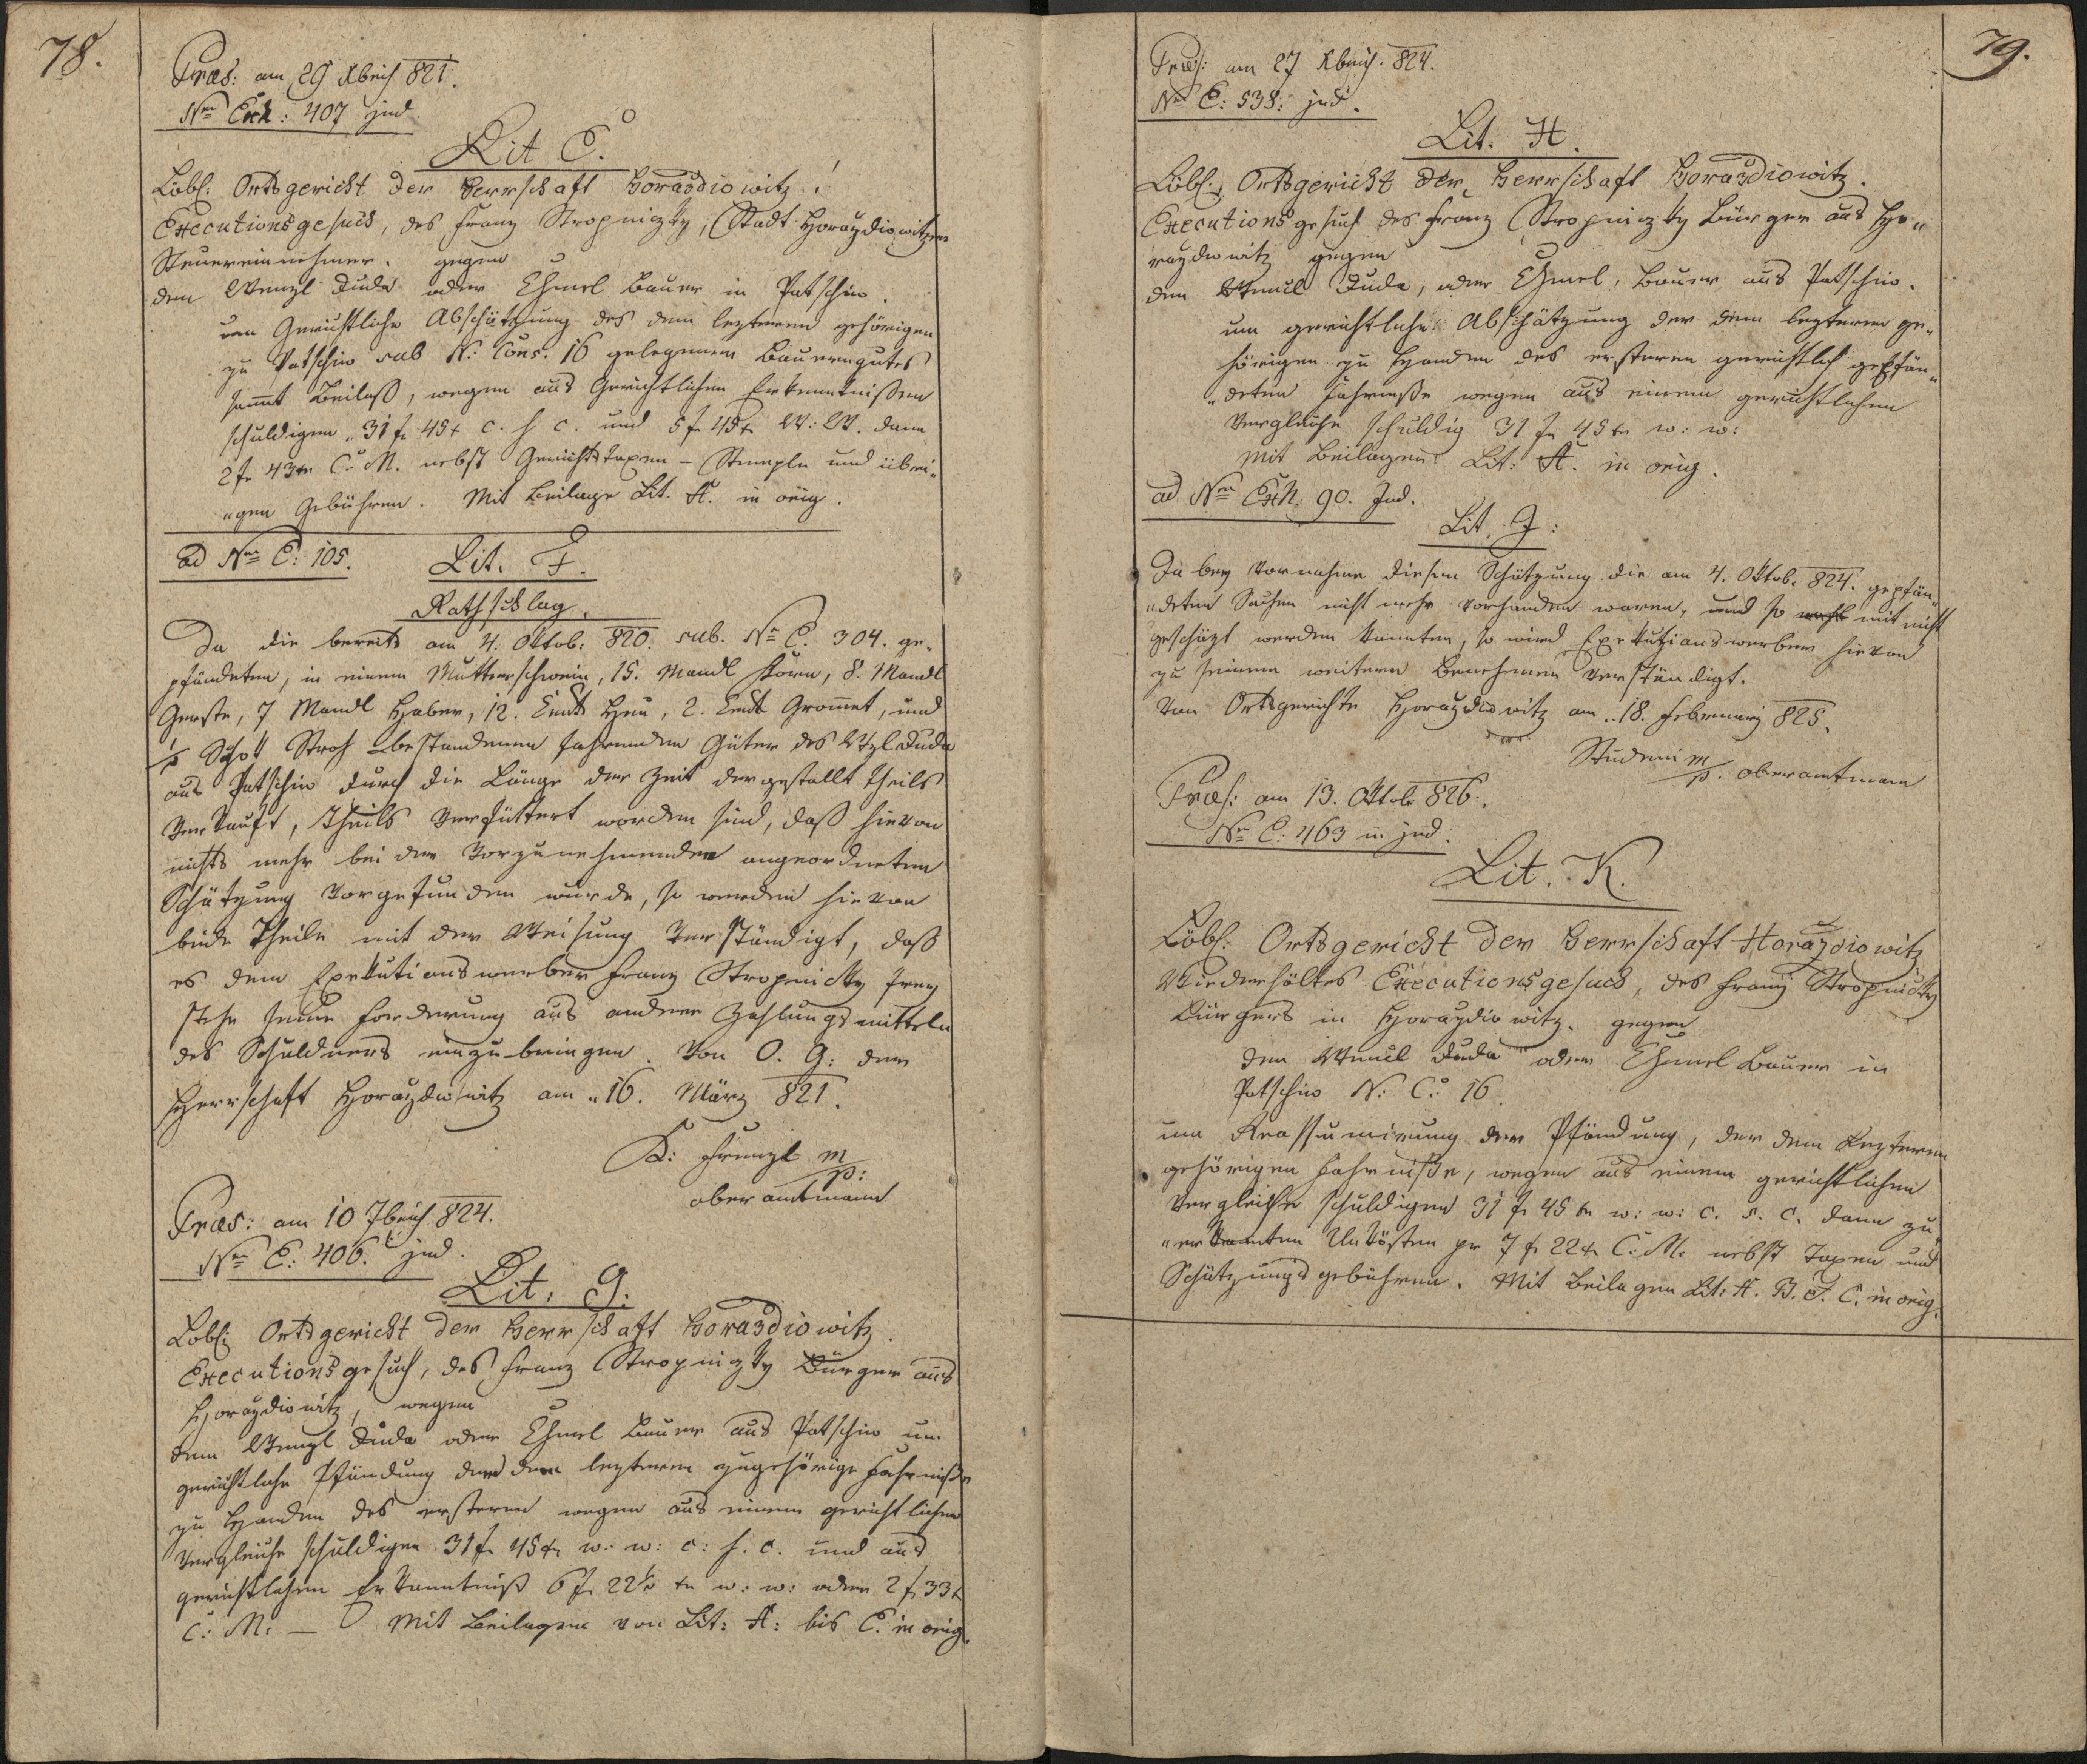 78.
Præs: am 29 Xbris 821.
Nro Exh: 407 jud.
Lit E.
Löbl: Ortsgericht der Herrschaft Horaždiowitz!
Executionsgesuch, des Franz Stropniczky, Stadt Horaždiowitzer
Steuereinnehmer. gegen
den Wenzl Duda oder Chmel Bauer in Patschin.
um Gerichtliche Abschätzung des dem lezteren gehörigen
zu Patschin sub N: Cons. 16 gelegenem Bauerngutes
sammt Beilaß, wegen aus Gerichtlichen Erkenntnißen
schuldigen 31 f 45 x c. s. c. und 5 f 45 x W: W. dann
2 f 43 x C. M. nebst Gerichtstaxen – Stempln und übri„
„gen Gebühren. Mit Beilage Lit. A. in orig.
ad Nro E: 105.
Lit. F.
Rathschlag.
Da die bereits am 4. Oktob: 820. sub. Nro E. 304. ge„
pfändeten, in einem Mutterschwein, 15. Mandl Korn, 8. Mandl
Gerste, 7 Mandl Haber, 12. Cent Heu, 2. Cent Gromet, und
½ Schok Stroh bestandenen fahrenden Güter des Wzl Duda
aus Patschin durch die Länge der Zeit dergestallt theils
verkauft, theils verfüttert worden sind, daß hievon
nichts mehr bei der vorzunehmenden angeordneten
Schätzung vorgefunden wurde, so werden hievon
beide Theile mit der Weisung verständigt, daß
es dem Exekutionswerber Franz Stropnicky frey
stehe seine Forderung aus andern Zahlungsmitteln
des Schuldners einzubringen. Von O. G: der
Herrschaft Horaždiowitz am 16. März 821.
K: Frenzl m/p:
oberamtmann
Præs: am 10 7bris 824.
Nro E: 406. jud.
Lit. G.
Löbl: Ortsgericht der Herrschaft Horaždiowitz.
Executionsgesuch, des Franz Stropniczky Bürger aus
Horaždiowitz, wegen
dem Wenzl Duda oder Chmel Bauer aus Patschin um
gerichtliche Pfändung der dem lezteren zugehörige Fahrniße
zu Handen des ersteren wegen aus einem gerichtlichen
Vergleiche schuldigen 31 f 45 x w: w: c: s. c. und aus
gerichtlichen Erkenntniß 6 f 22½ x w: w: oder 2 f 33 x
C: M: – Mit Beilagen von Lit: A: bis E. in orig.
79.
Præs: am 27 Xbris. 824.
Nro E: 538: jud.
Lit. H.
Löbl: Ortsgericht der Herrschaft Horaždiowitz.
Executionsgesuch des Franz Stropniczky Bürger aus Ho„
raždiowitz gegen
den Wenzl Duda, oder Chmel, Bauer aus Patschin.
um gerichtliche Abschätzung der dem lezteren ge„
hörigen zu Handen des ersteren gerichtlich gepfän„
„deten Fahrniße wegen aus einem gerichtlichen
Vergleiche schuldig 31 f 45 x w: w:
Mit Beilagen Lit: A. in orig.
ad Nro Exh. 90. Jud.
Lit. J:
Da bey Vornahme diesen Schätzung die am 4. Oktob. 824. gepfän„
„deten Sachen nicht mehr vorhanden waren, und so mit nicht
geschäzt werden konnten, so wird Exekutionswerber hievon
zu seinem weitern Benehmen verständigt.
Von Ortsgerichte Horaždiowitz am 18. Februar 825.
Studeni m/p. oberamtmann
Præs: am 13. Oktob 826.
Nro E: 463 in jud.
Lit. K.
Löbl: Ortsgericht der Herrschaft Horaždiowitz
Wiederholtes Executionsgesuch, des Franz Stropnicky
Bürgers in Horaždiowitz. gegen
den Wenzl Duda oder Chmel Bauer in
Patschin N: C: 16.
um Reassumirung der Pfändung, der dem Lezteren
gehörigen Fahrniße, wegen aus einem gerichtlichen
Vergleiche schuldigen 31 f 45 x w: w: c. s. c. dann zu„
„erkannten Unkösten pr 7 f 22 x C: M. nebst Taxen und
Schätzungsgebühren. Mit Beilagen Lit: A. B. F. C. in orig.